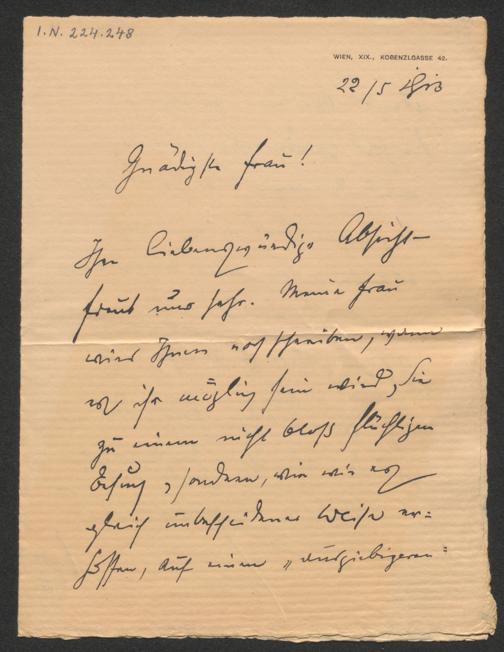 I.N. 224.248
WIEN, XIX., KOBENZLGASSE 42.
22/5 1913
Gnädigste Frau!
Ihre liebenswürdige Absicht
freut uns sehr. Meine Frau
wird Ihnen noch schreiben, wann
es ihr möglich sein wird, Sie
zu einem nicht bloß flüchtigen
Besuch, sondern, wie wir es
gleich unbescheidener Weise er-
hofften, auf einen „ausgiebigeren"